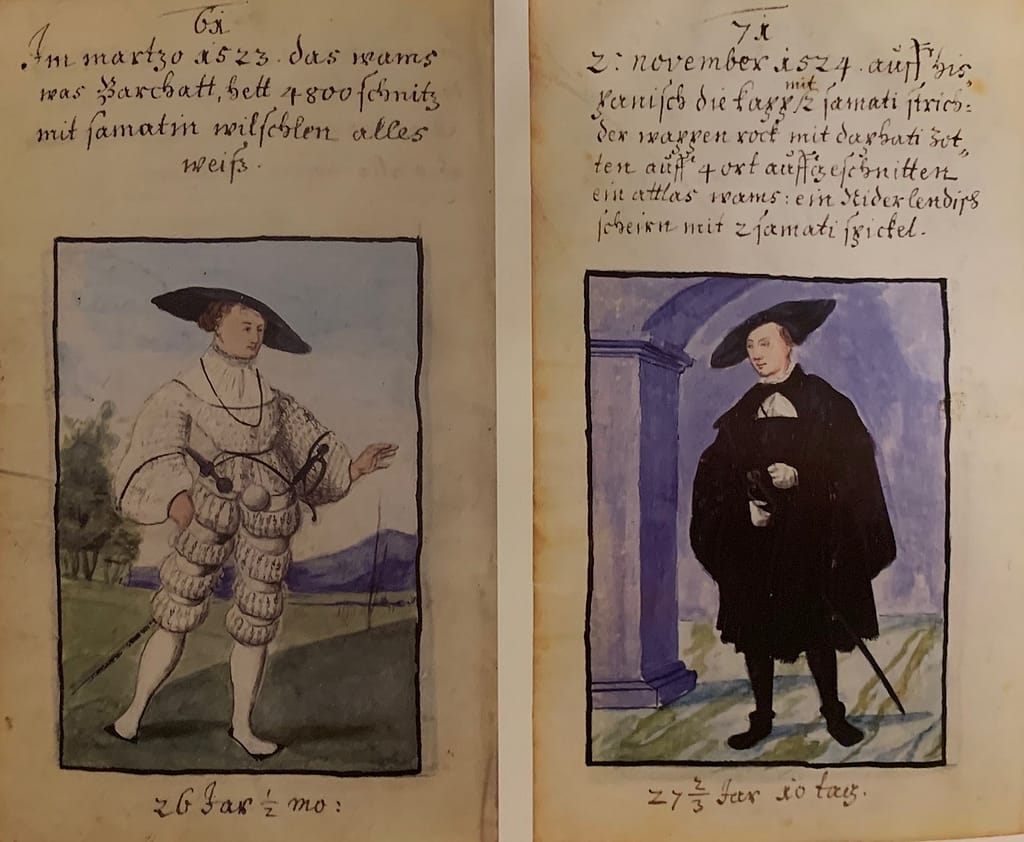 61
Im martzo 1523. das wams
was Barchatt, hett 4800 schnitz
mit samatin wilschlen alles
weiß.
26 Jar ½ mo:
71
2: november 1524. auff his
panisch die kapp mit samati strich:
der wappen rock mit darhati zot
ten auff 4 ort auffgeschnitten
ein attlas wams: ein Niderlendisch
scheirn mit 2 samati spickel.
27 ⅔ Jar 10 tag.